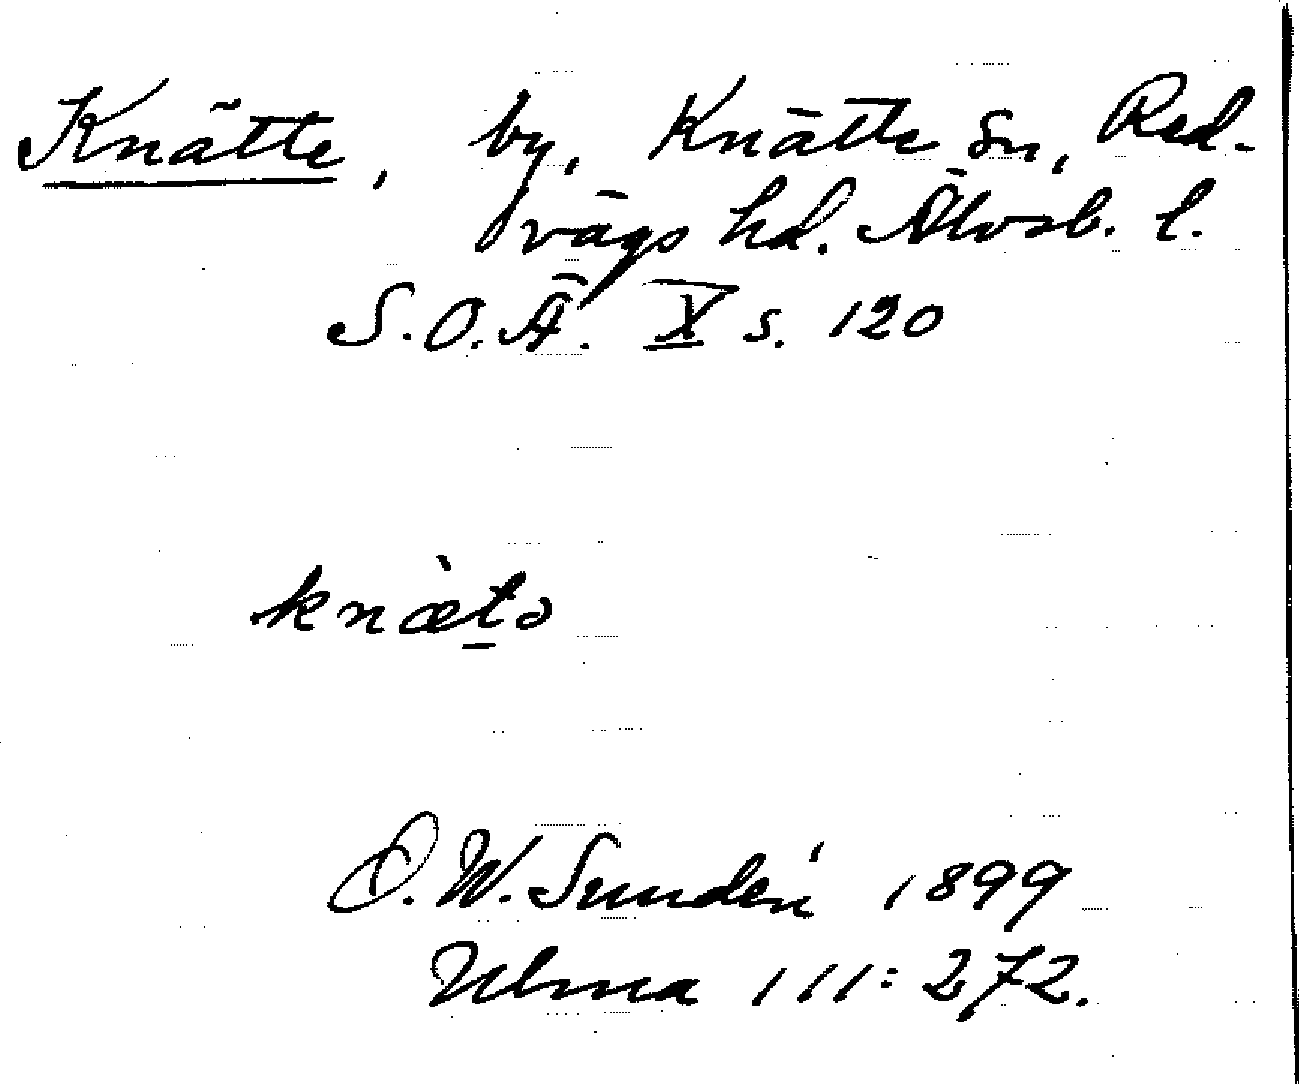 Knätte, by, Knätte sn, Red-
vägs hd. Älvsb. l.
S.O.Ä. X s. 120
knæ̀t̠ə
D. W. Sundén 1899
Ulma 111:272.